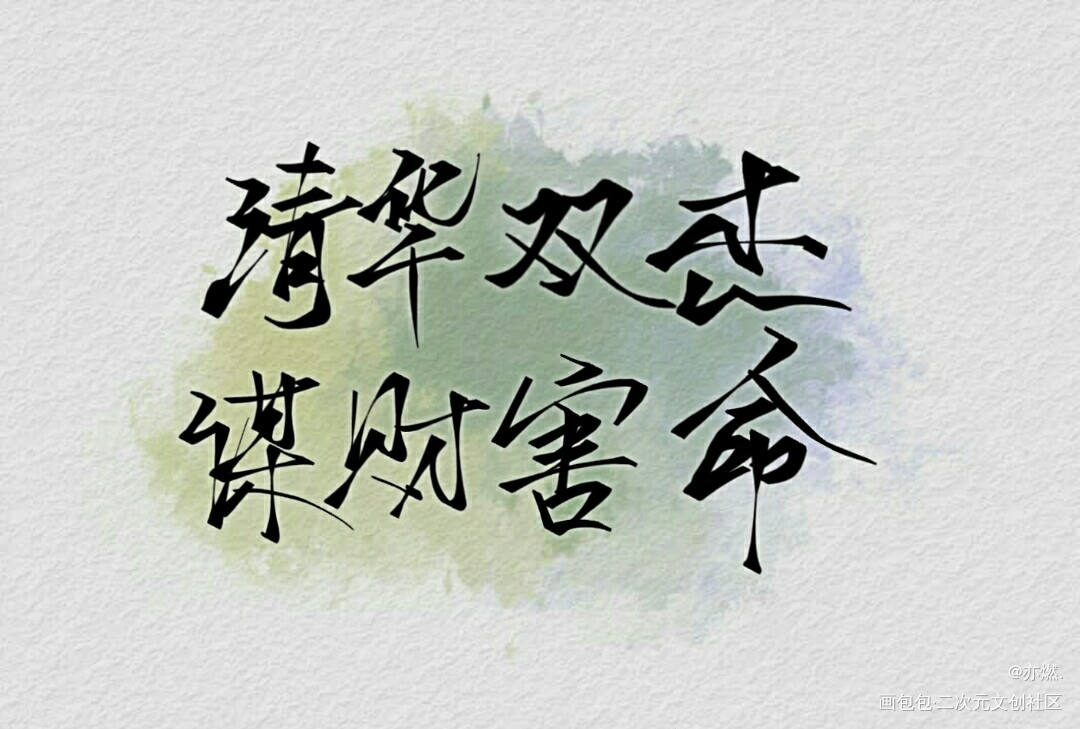 清华双杰
谋财害命
@亦燃.
画包包·二次元文创社区